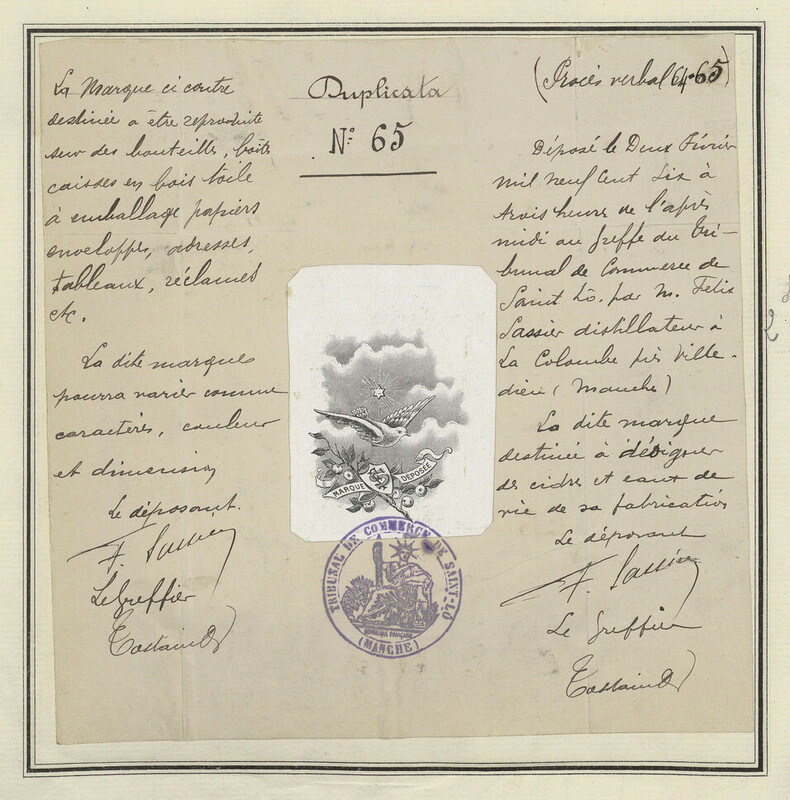 La Marque ci contre
destinée a être reproduite
sur des bouteilles, boîtes
caisses en bois toile
à emballage papiers
enveloppes, adresses,
tableaux, réclames
etc.
La dite marque
pourra varier comme
caractères, couleur
et dimension
Le déposant.
F. Sassier
Le Greffier
Duplicata
N° 65
MARQUE DÉPOSÉE
TRIBUNAL DE COMMERCE DE SAINT-LÔ
RÉPUBLIQUE FRANÇAISE
(MANCHE)
(Procès verbal 64-65)
Déposé le Deux Février
mil neuf cent six à
trois heures de l'après
midi au Greffe du Tri-
bunal de Commerce de
Saint Lô. par M. Felix
Sassier distillateur à
La Colombe près Ville-
dieu (Manche)
La dite marque
destinée à désigner
des cidres et eaux de
vie de sa fabrication
Le déposant
F. Sassier
Le Greffier